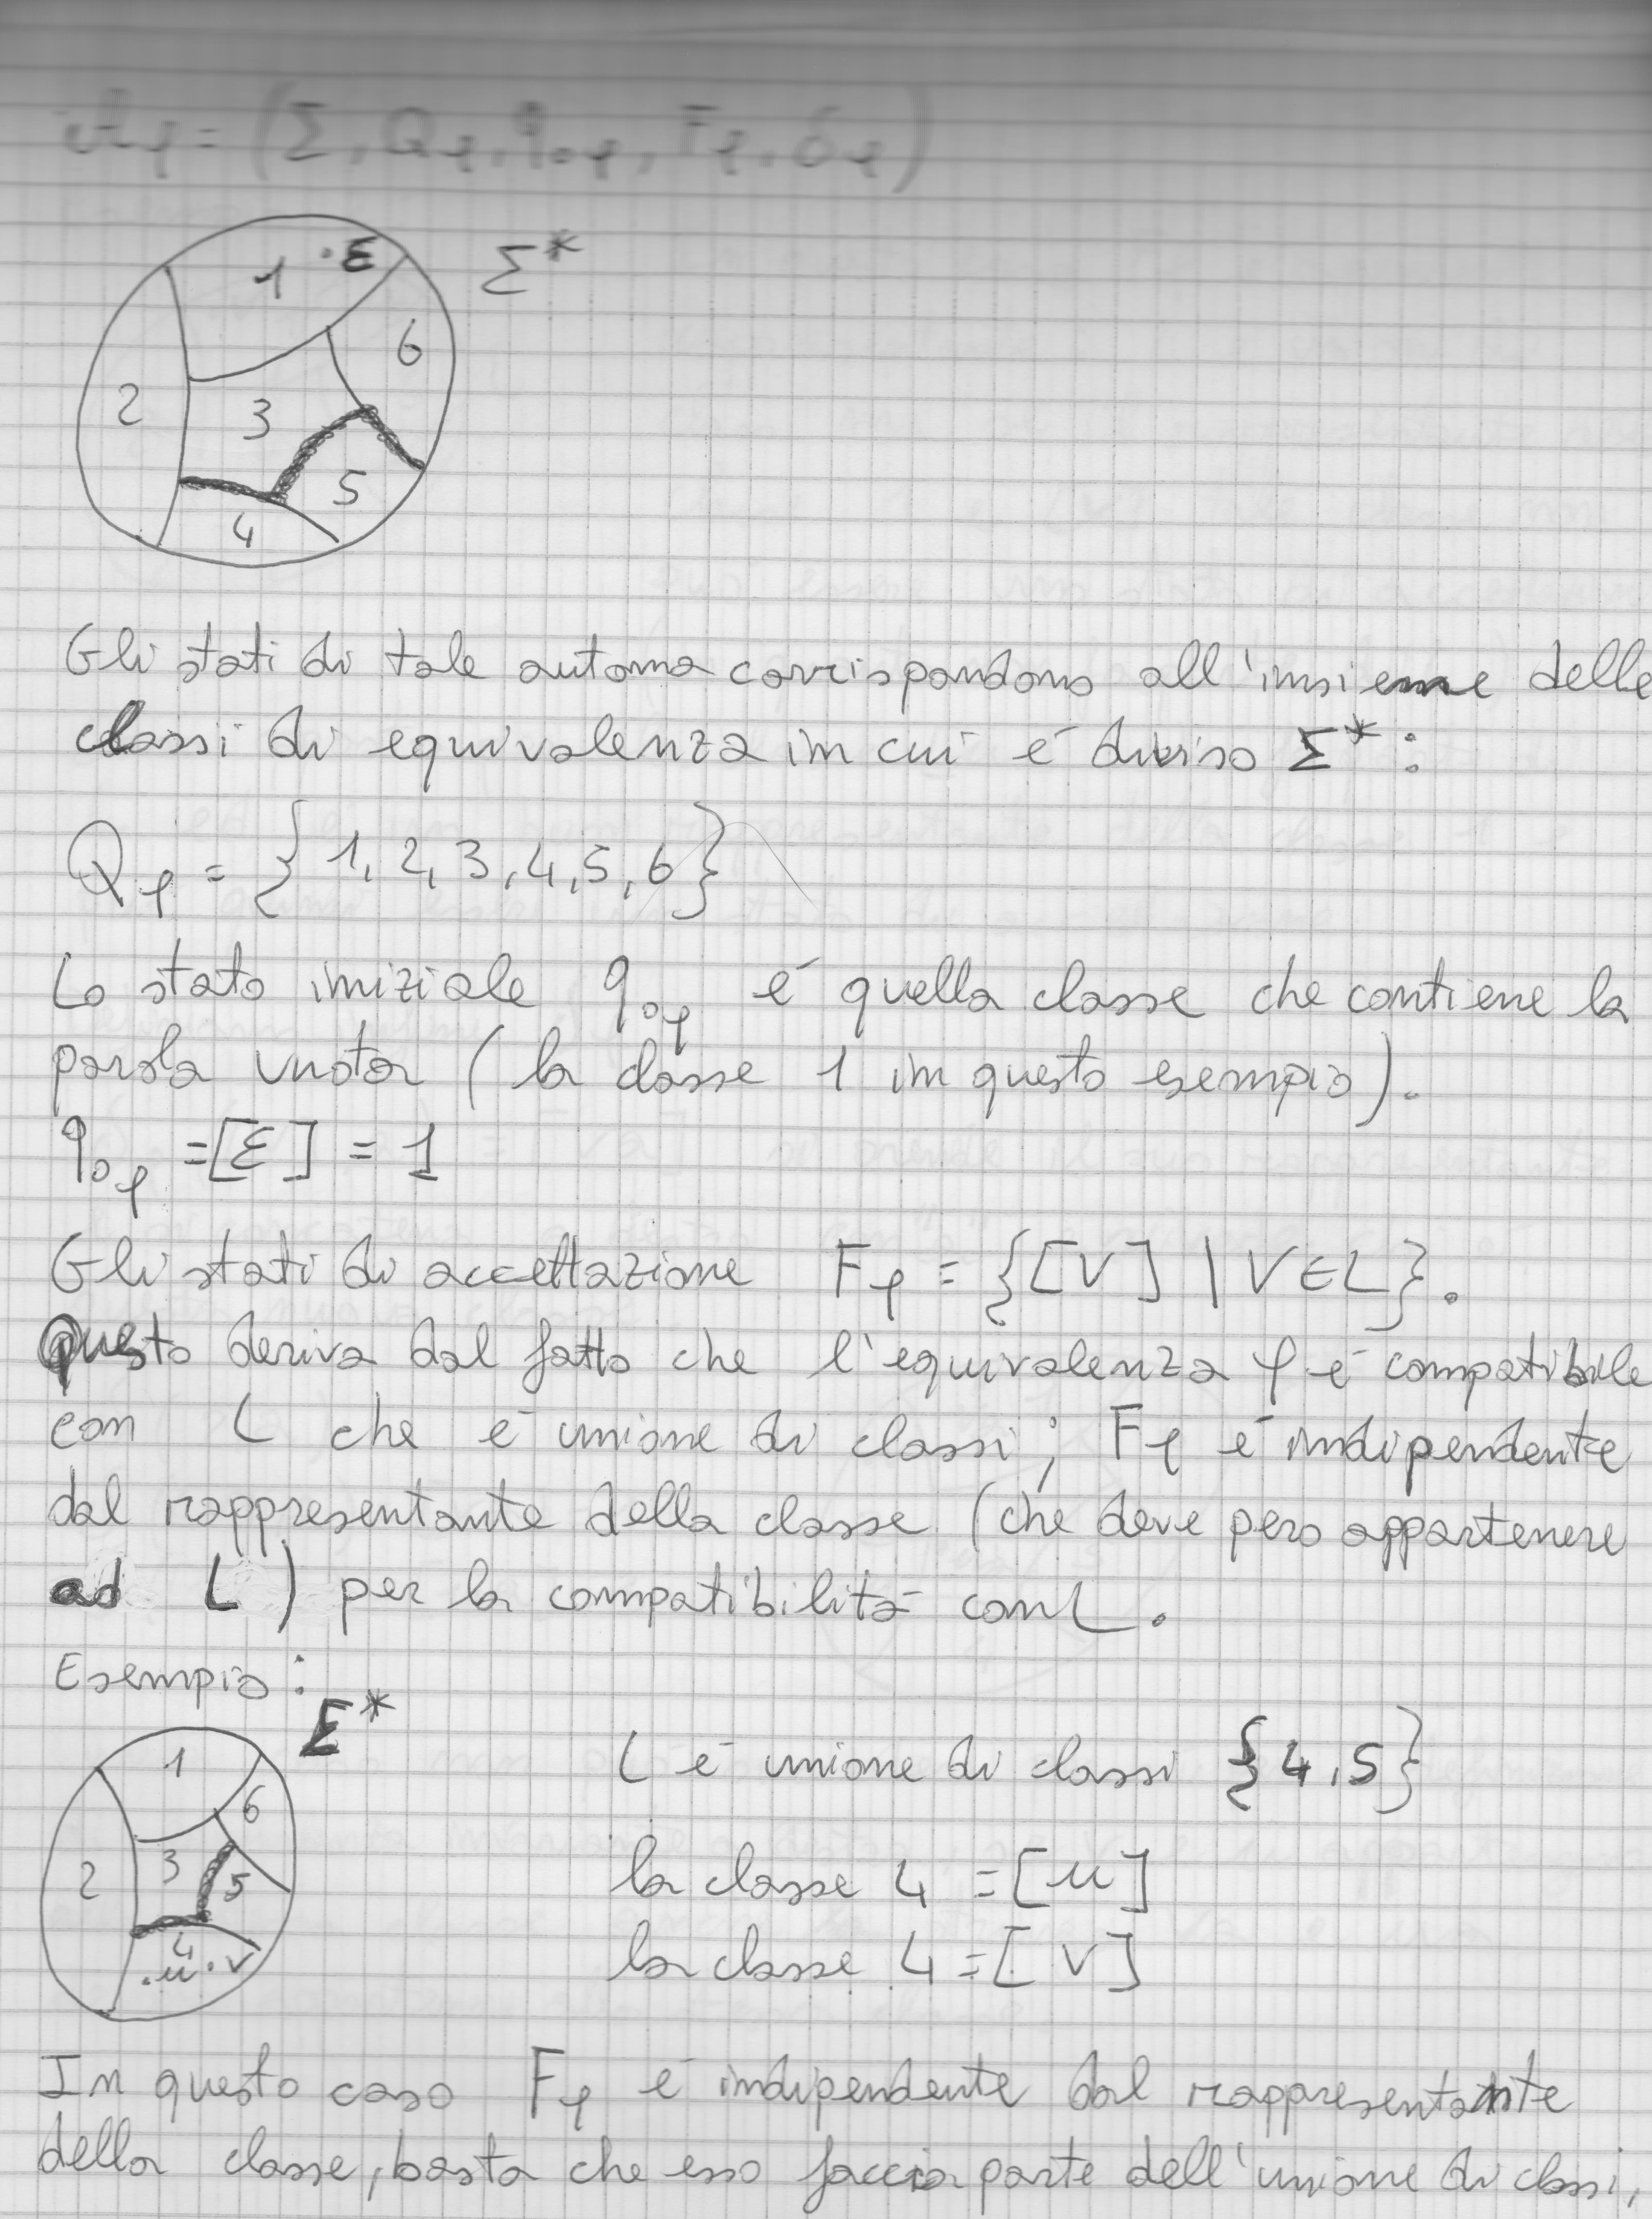 A_φ = (Σ, Q_φ, q_0φ, F_φ, δ_φ)
1 .ε
Σ*
6
2
3
5
4
Gli stati di tale automa corrispondono all'insieme delle
classi di equivalenza in cui é diviso Σ* :
Q_φ = {1, 2, 3, 4, 5, 6}
Lo stato iniziale q_0φ é quella classe che contiene la
parola vuota (la classe 1 in questo esempio).
q_0φ = [ε] = 1
Gli stati di accettazione F_φ = {[V] | V ∈ L}.
Questo deriva dal fatto che l'equivalenza φ é compatibile
con L che é unione di classi; F_φ é indipendente
dal rappresentante della classe (che deve pero appartenere
ad L) per la compatibilitá con L.
Esempio:
Σ*
1
6
2
3
5
4
.u .v
L é unione di classi {4,5}
la classe 4 = [u]
la classe 4 = [v]
In questo caso F_φ é indipendente dal rappresentante
della classe, basta che esso faccia parte dell'unione di classi,